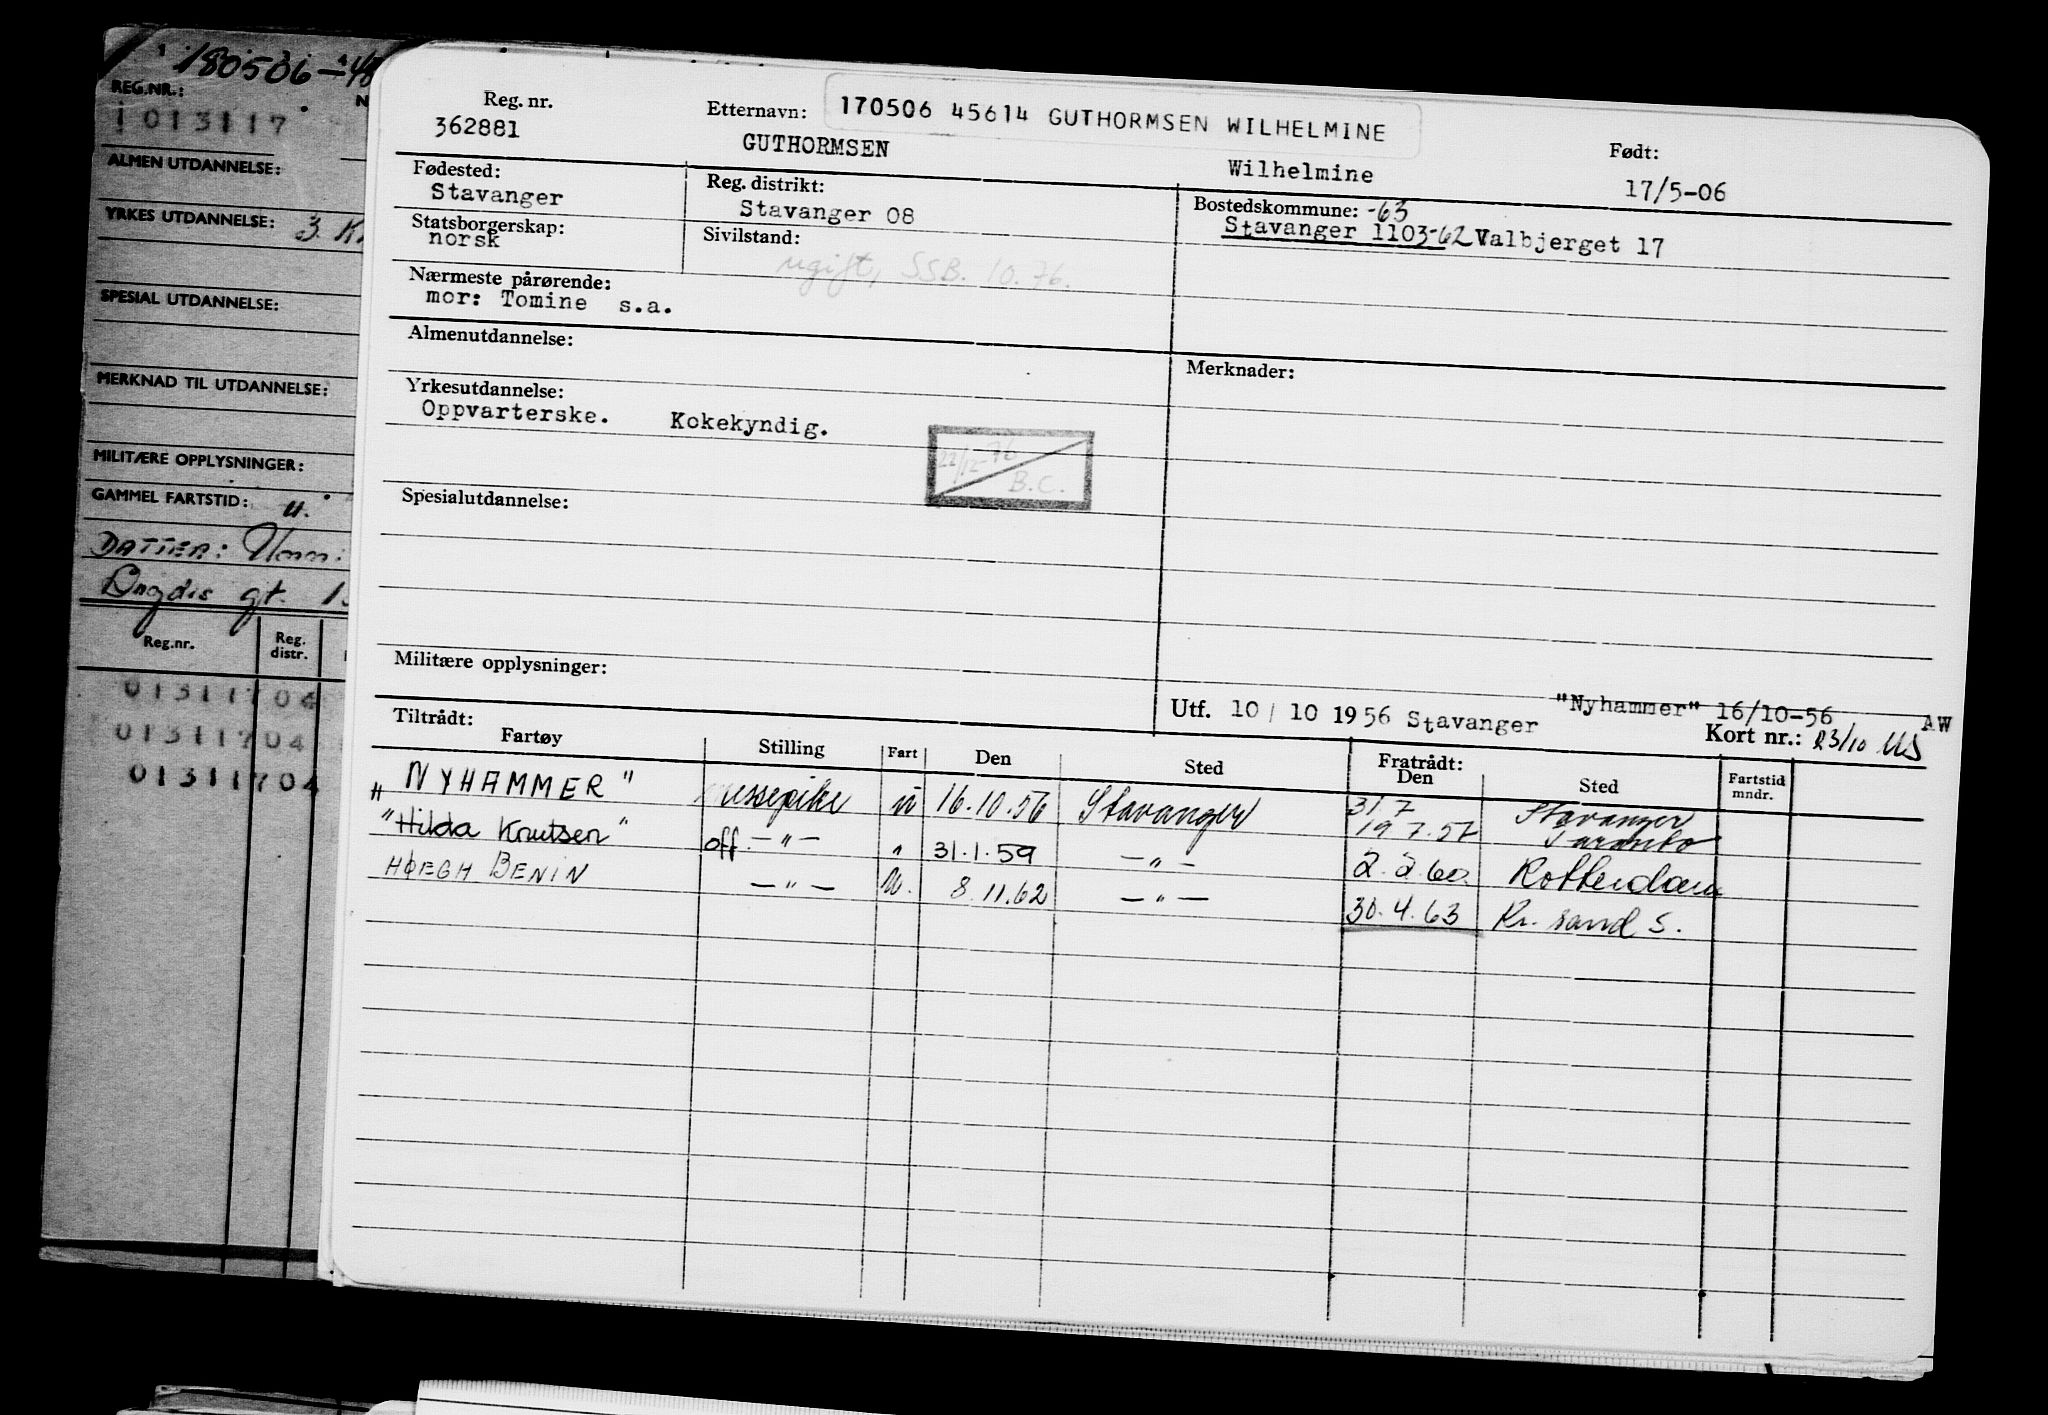 180506-48
REG.NR.:
1013117
ALMEN UTDANNELSE:
YRKES UTDANNELSE: 3.
SPESIAL UTDANNELSE:
MERKNAD TIL UTDANNELSE:
MILITÆRE OPPLYSNINGER:
GAMMEL FARTSTID: u.
DATTER:
gt.
Reg.nr. Reg. distr.
01311704
01311704
01311704
Reg. nr. Etternavn: 170506 45614 GUTHORMSEN WILHELMINE Født:
362881 GUTHORMSEN Wilhelmine 17/5-06
Fødested: Reg. distrikt: Bostedskommune: -63
Stavanger Stavanger 08 Stavanger 1103-62 Valbjerget 17
Statsborgerskap: Sivilstand:
norsk ugift, SSB. 10.76.
Nærmeste pårørende:
mor: Tomine s.a.
Almenutdannelse: Merknader:
Yrkesutdannelse:
Oppvarterske. Kokekyndig.
22/12-76
B.C.
Spesialutdannelse:
Militære opplysninger:
Utf. 10/10 1956 Stavanger "Nyhammer" 16/10-56 AW
Kort nr.: 23/10 US
Tiltrådt: Fratrådt:
Fartøy Stilling Fart Den Sted Den Sted Fartstid mndr.
"NYHAMMER" messepike u 16.10.56 Stavanger 31.7 Stavanger
19.7.57 Taranto
"Hilda Knutsen" off -"- " 31.1.59 -"- 2.2.60. Rotterdam
HØEGH BENIN -"- U. 8.11.62 -"- 30.4.63 Kr. sand S.